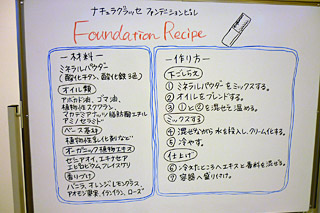 ナチュラグラッセ ファンデーションレシピ
Foundation Recipe
－材料－
ミネラルパウダー
(酸化チタン、酸化鉄3色)
オイル類
アボカド油、ゴマ油、
植物性スクワラン、
マカデミアナッツ脂肪酸エチル
アミノセラミド
ベース素材
オーガニック植物エキス
セージ
香り付け
バニラ、オレンジ、レモングラス、
アオモジ果実、イランイラン、ローズ
－作り方－
下ごしらえ
① ミネラルパウダーをミックスする。
② オイルをブレンドする。
③ ①と②を混ぜて温める。
ミックスする
④ 混ぜながら水を投入しクリーム化する。
⑤ 冷やす。
仕上げ
⑥ 冷えたところへエキスと香料を混ぜる。
⑦ 容器へ盛り付け。